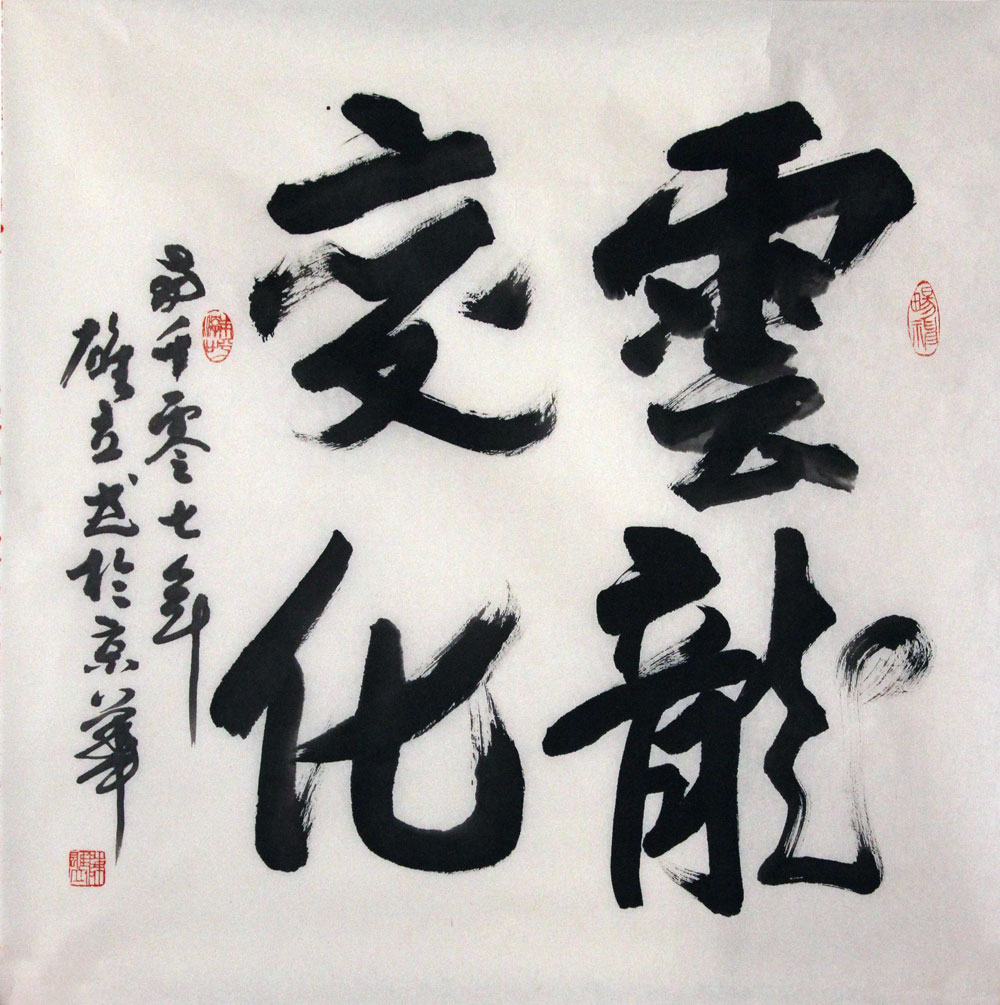 雲龍
交化
易千零七年
雄立书於京華